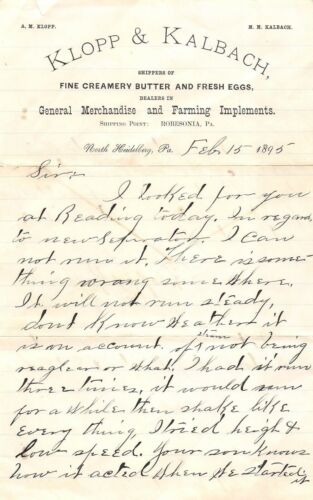 A. M. KLOPP.
H. M. KALBACH.
KLOPP & KALBACH,
SHIPPERS OF
FINE CREAMERY BUTTER AND FRESH EGGS,
DEALERS IN
General Merchandise and Farming Implements.
SHIPPING POINT: ROBESONIA, PA.
North Heidelberg, Pa. Feb 15 1895
Sir:
I looked for you
at Reading today. In regard
to new Seperator. I can
not run it. There is some-
thing wrong some where.
It will not run steady,
dont Know weather it
is on account of steam not being
reaglear or what. I had it run
three times, it would run
for a while then shake like
every thing, I tried heigh &
low speed. Your son knows
how it acted when he started it